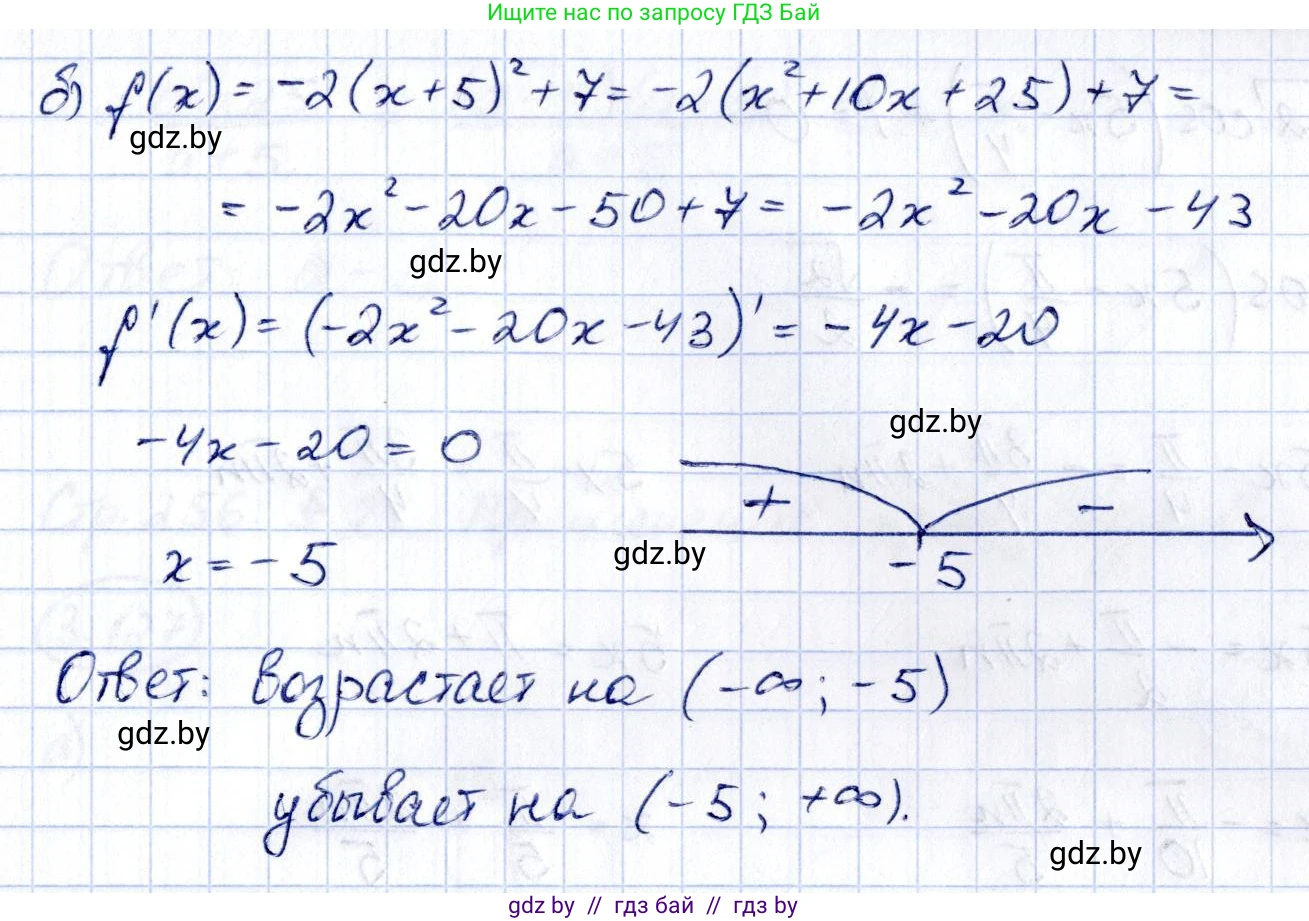 Ищите нас по запросу ГДЗ Бай
б) f(x) = -2(x+5)² + 7 = -2(x²+10x+25)+7 =
gdz.by
= -2x² - 20x - 50 + 7 = -2x² - 20x - 43
gdz.by
f'(x) = (-2x² - 20x - 43)' = -4x - 20
gdz.by
-4x - 20 = 0
+ -
x = -5
gdz.by
-5
Ответ: возрастает на (-∞; -5)
gdz.by
убывает на (-5; +∞).
gdz.by
gdz.by // гдз бай // гдз by